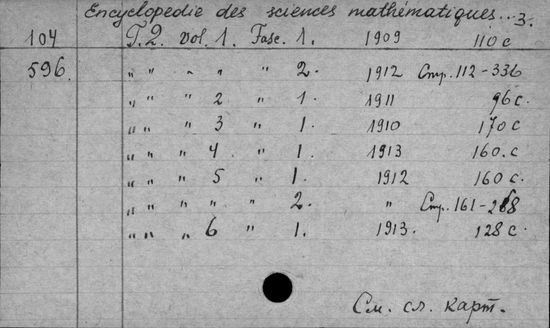 Encyclopedie des sciences mathématiques...3.
104 T.2. vol. 1. Fasc. 1. 1909 110 с
596. " " " " " 2. 1912 Стр. 112-336
" " " 2 " 1. 1911 96 с.
" " " 3 " 1. 1910 170 с
" " " 4 " 1. 1913 160. с
" " " 5 " 1. 1912 160 с.
" " " " " 2. " Стр. 161-288
" " " 6 " 1. 1913. 128 с.
См. сл. карт.